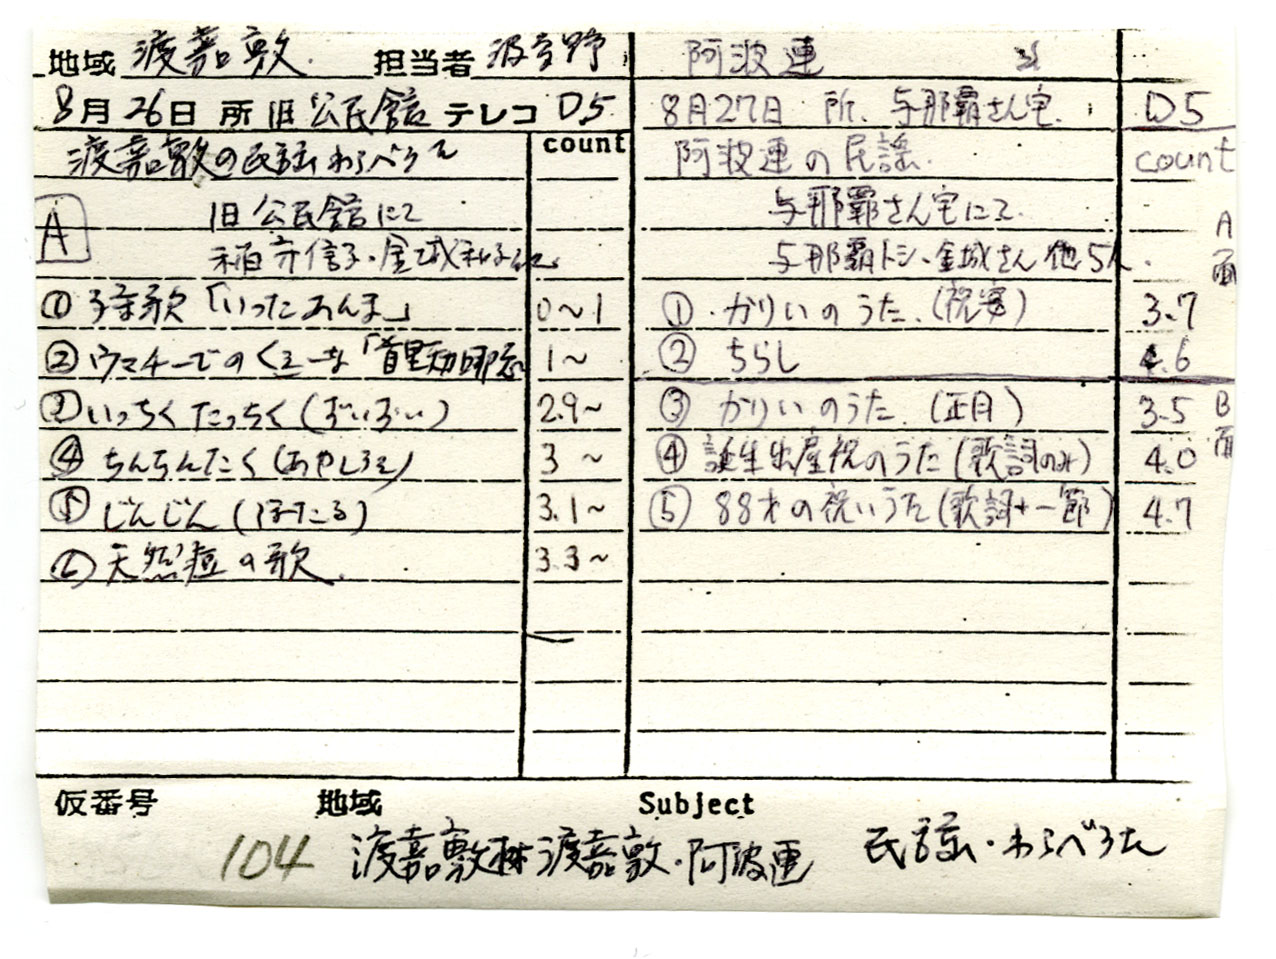 地域 渡嘉敷 担当者 波
8月26日 所 旧公民館 テレコ D5
渡嘉敷の民謡わらべうた count
A 旧公民館にて
信子・金城
① 子守歌「いったあんま」 0～1
② ウマチーでのくぇーな「 1～
③ いっちくたっちく(ずいずい) 2.9～
④ ちんちんたく(あやしうた) 3～
⑤ じんじん(ほたる) 3.1～
⑥ 天然痘の歌 3.3～
阿波連
8月27日 所. 与那覇さん宅. D5
阿波連の民謡. count
与那覇さん宅にて A面
与那覇トシ、金城さん他5人.
① かりいのうた.(祝宴) 3.7
② ちらし 4.6
③ かりいのうた.(正月) 3.5 B面
④ 誕生出産祝のうた(歌詞のみ) 4.0
⑤ 88才の祝いうた(歌詞+一節) 4.7
仮番号 地域 Subject
104 渡嘉敷村渡嘉敷・阿波連 民謡・わらべうた